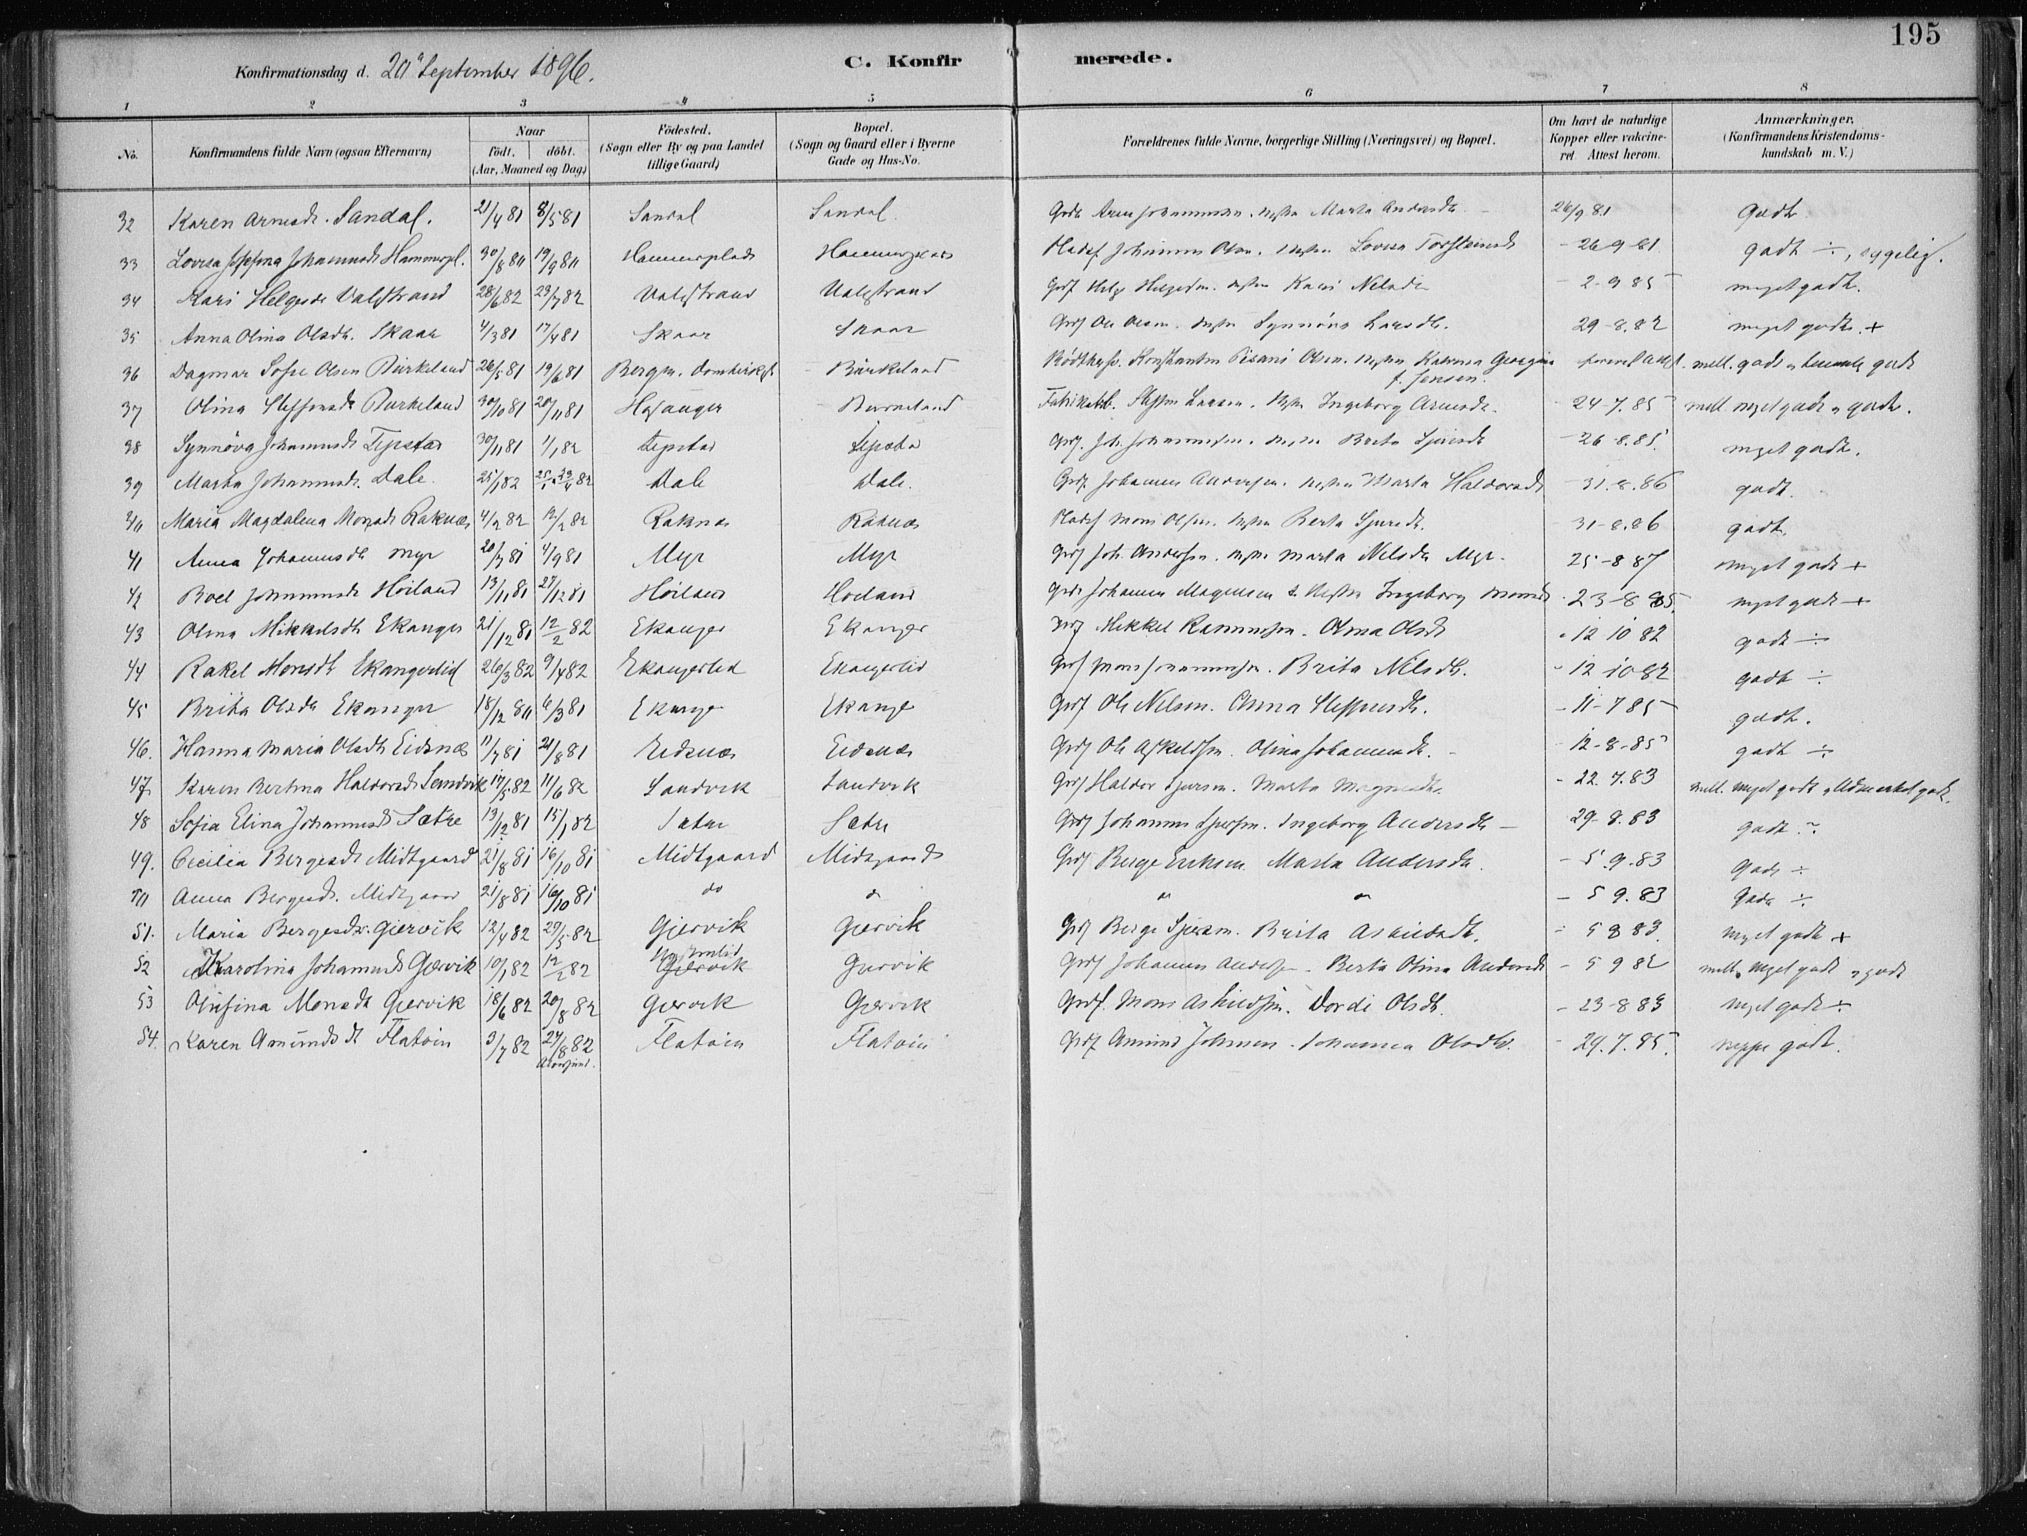 195
Konfirmationsdag d. 20de September 1896. C. Konfirmerede.
1 2 3 4 5 6 7 8
No. Konfirmandens fulde Navn (ogsaa Efternavn) Naar Födt. döbt. (Aar, Maaned og Dag) Födested. (Sogn eller By og paa Landet tillige Gaard) Bopæl. (Sogn og Gaard eller i Byerne Gade og Hus-No. Forældrenes fulde Navne, borgerlige Stilling (Næringsvei) og Bopæl. Om havt de naturlige Kopper eller vakcineret. Attest herom. Anmærkninger. (Konfirmandens Kristendomskundskab m. V.)
32 Karen Arnesdt. Sandal. 21/4 81 8/5 81 Sandal Sandal. Marta Andersdt. 26/9 81 Godt
33 Lovisa Josefina Johannesdt Hammerpl. 30/8 80 19/9 80 Hammerplads Johannes Olsen. Hustru Lovisa Torsteinsdt - 26-9-81 godt ÷, sygelig.
34 Kari Helgesdt Valestrand 28/6 82 23/7 82 Valestrand Valestrand Grbr Helge Helgesen. Hustru Kari Nilsdt - 2-9 85 meget godt.
35 Anna Olina Olsdt. Skaar 4/3 81 17/4 81 Skaar Skaar Grbr Ole Olsen. Hustru Synnøva Larsdt. 29-8.82 meget godt. +
36 Dagmar Sofie Olsen Birkeland 26/5 81 19/6 81 Bergen. Domkirkesg. Birkeland Konstantin Pisani Olsen. Hustru Katrina Georgina f. Jensen. mell. godt og temmelig godt
37 Olina Steffensdt Birkeland 30/10 81 20/11 81 Hosanger Birkeland Steffen Larsen. Hustru Ingeborg Arnesdt. - 24-7.85 mell. meget godt og godt.
38 Synnöva Johannesdt Tepstad 30/11 81 1/1 82 Tepstad Grbr. Joh. Johannessen. Hustru Brita Sjursdt - 26-8.85. meget godt.
39 Marta Johannesdt. Dale. 25/1 82 Dale Dale. Grbr. Johannes Andersen. Hustru Marta Haldorsdt - 31.8.86 godt.
40 Maria Magdalena Monsdt Raknes 4/2 82 12/2 82 Raknes Raknes Mons Olsen. Hustru Berta Sjursdt. 31-8.86 godt.
41 Anna Johannesdt Myr 20/7 81 4/9 81 Myr Myr Grbr Joh. Andersen. Hustru Marta Nilsdt Myr. 25-8 87 meget godt +
42 Boel Johannesdt Høiland 13/11 81 27/12 81 Höiland Høiland Grbr Johannes Magnesen & Hustru Ingeborg Monsdt. 23-8 85. meget godt +
43 Olina Mikkelsdt Ekanger 21/12 81 12/2 82 Ekanger Ekanger Grbr Mikkel Rasmussen. Olina Olsdt - 12 10 82 godt ÷
44 Rakel Monsdt Ekangerlid 26/3 82 9/4 82 Ekangerlid Ekangerlid Grbr Mons Johannessen. Brita Nilsdt. - 12 10-82 godt ÷
45 Brita Olsdt Ekanger 18/12 80 6/3 81 Ekanger Ekanger Grbr Ole Nilsen. Anna Steffensdt. - 11-7 85 godt.
46. Hanna Maria Olsdt Eidsnes 11/7 81 21/8 81 Eidsnes Eidsnes Grbr Ole Askeldsen. Olina Johannesdt. - 12-8-85 godt ÷
47. Karen Bertina Haldorsdt Sandvik 17/5 82 11/6 82 Sandvik Sandvik Grbr Haldor Sjursen. Marta Magnesdt. - 22.7.83 mell. meget godt og udmerket godt.
48 Sofia Elina Johannesdt Sætre 13/12 81 15/1 82 Sætre Sætre Grbr Johannes Sjursen. Ingeborg Andersdt - 29-8.83 godt. ~
49. Cecilia Bergesdt Midtgaard 21/8 81 16/10 81 Midtgaard Midtgaard Grbr Berge Eriksen. Marta Andersdt. - 5.9.83 Godt ÷
50 Anna Bergesdt. Midtgaard 21/8 81 16/10 81 do " " " - 5 9.83 Godt ÷.
51. Maria Bergesdt. Gjervik 12/4 82 29/5 82 Gjervik Gjervik Grbr Berge Sjursen. Brita Askildsdt. - 5 8 83. meget godt +
52 Karolina Johannesdt Gjervik 10/1 82 12/2 82 Gjervik Gjervik Grbr Johannes Andersen. Berta Olina Andersdt - 5 9 82 mell. meget godt og godt
53 Olufina Monsdt Gjervik 18/6 82 20/8 82 Gjervik Gjervik Grbr. Mons Askildsen. Dordi Olsdt. - 23-8 83 meget godt ÷
54. Karen Amundsdt Flatöin 3/7 82 27/8 82 Flatöin Flatöin Grbr Amund Johnsen. Johanna Olsdt. - 29.7.85. neppe godt.